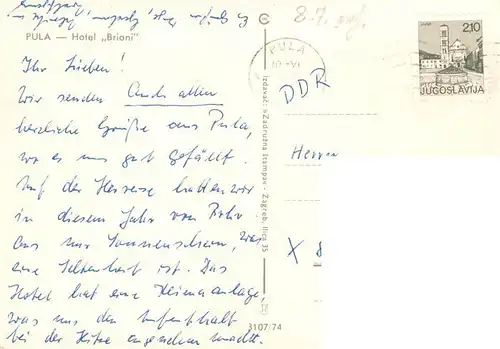 PULA — Hotel „Brioni"
Ihr Lieben!
Wir senden Euch allen
herzliche Grüße aus Pula,
wo es uns gut gefällt.
Auf der Herreise hatten wir
in diesem Jahr von
aus nur Sonnenschein, was
eine Seltenheit ist. Das
Hotel hat eine Klimaanlage,
was uns den Aufenthalt
bei der Hitze angenehm macht.
Izdavač: »Zadružna štampa« - Zagreb, Ilica 35
3107/74
PULA
DDR
2,10
JUGOSLAVIJA
Herrn
X